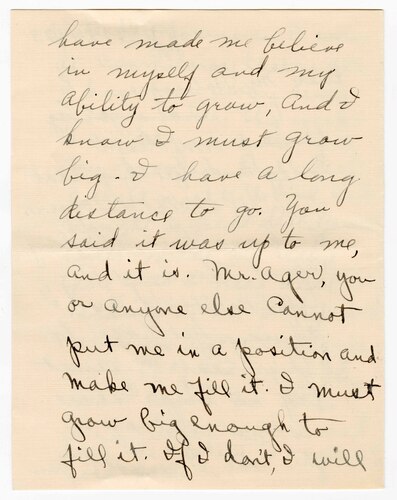 have made me believe
in myself and my
ability to grow, And I
know I must grow
big - I have a long
distance to go. You
said it was up to me,
And it is. Mr. Ager, you
or anyone else cannot
put me in a position and
make me fill it. I must
grow big enough to
fill it. If I don't, I will